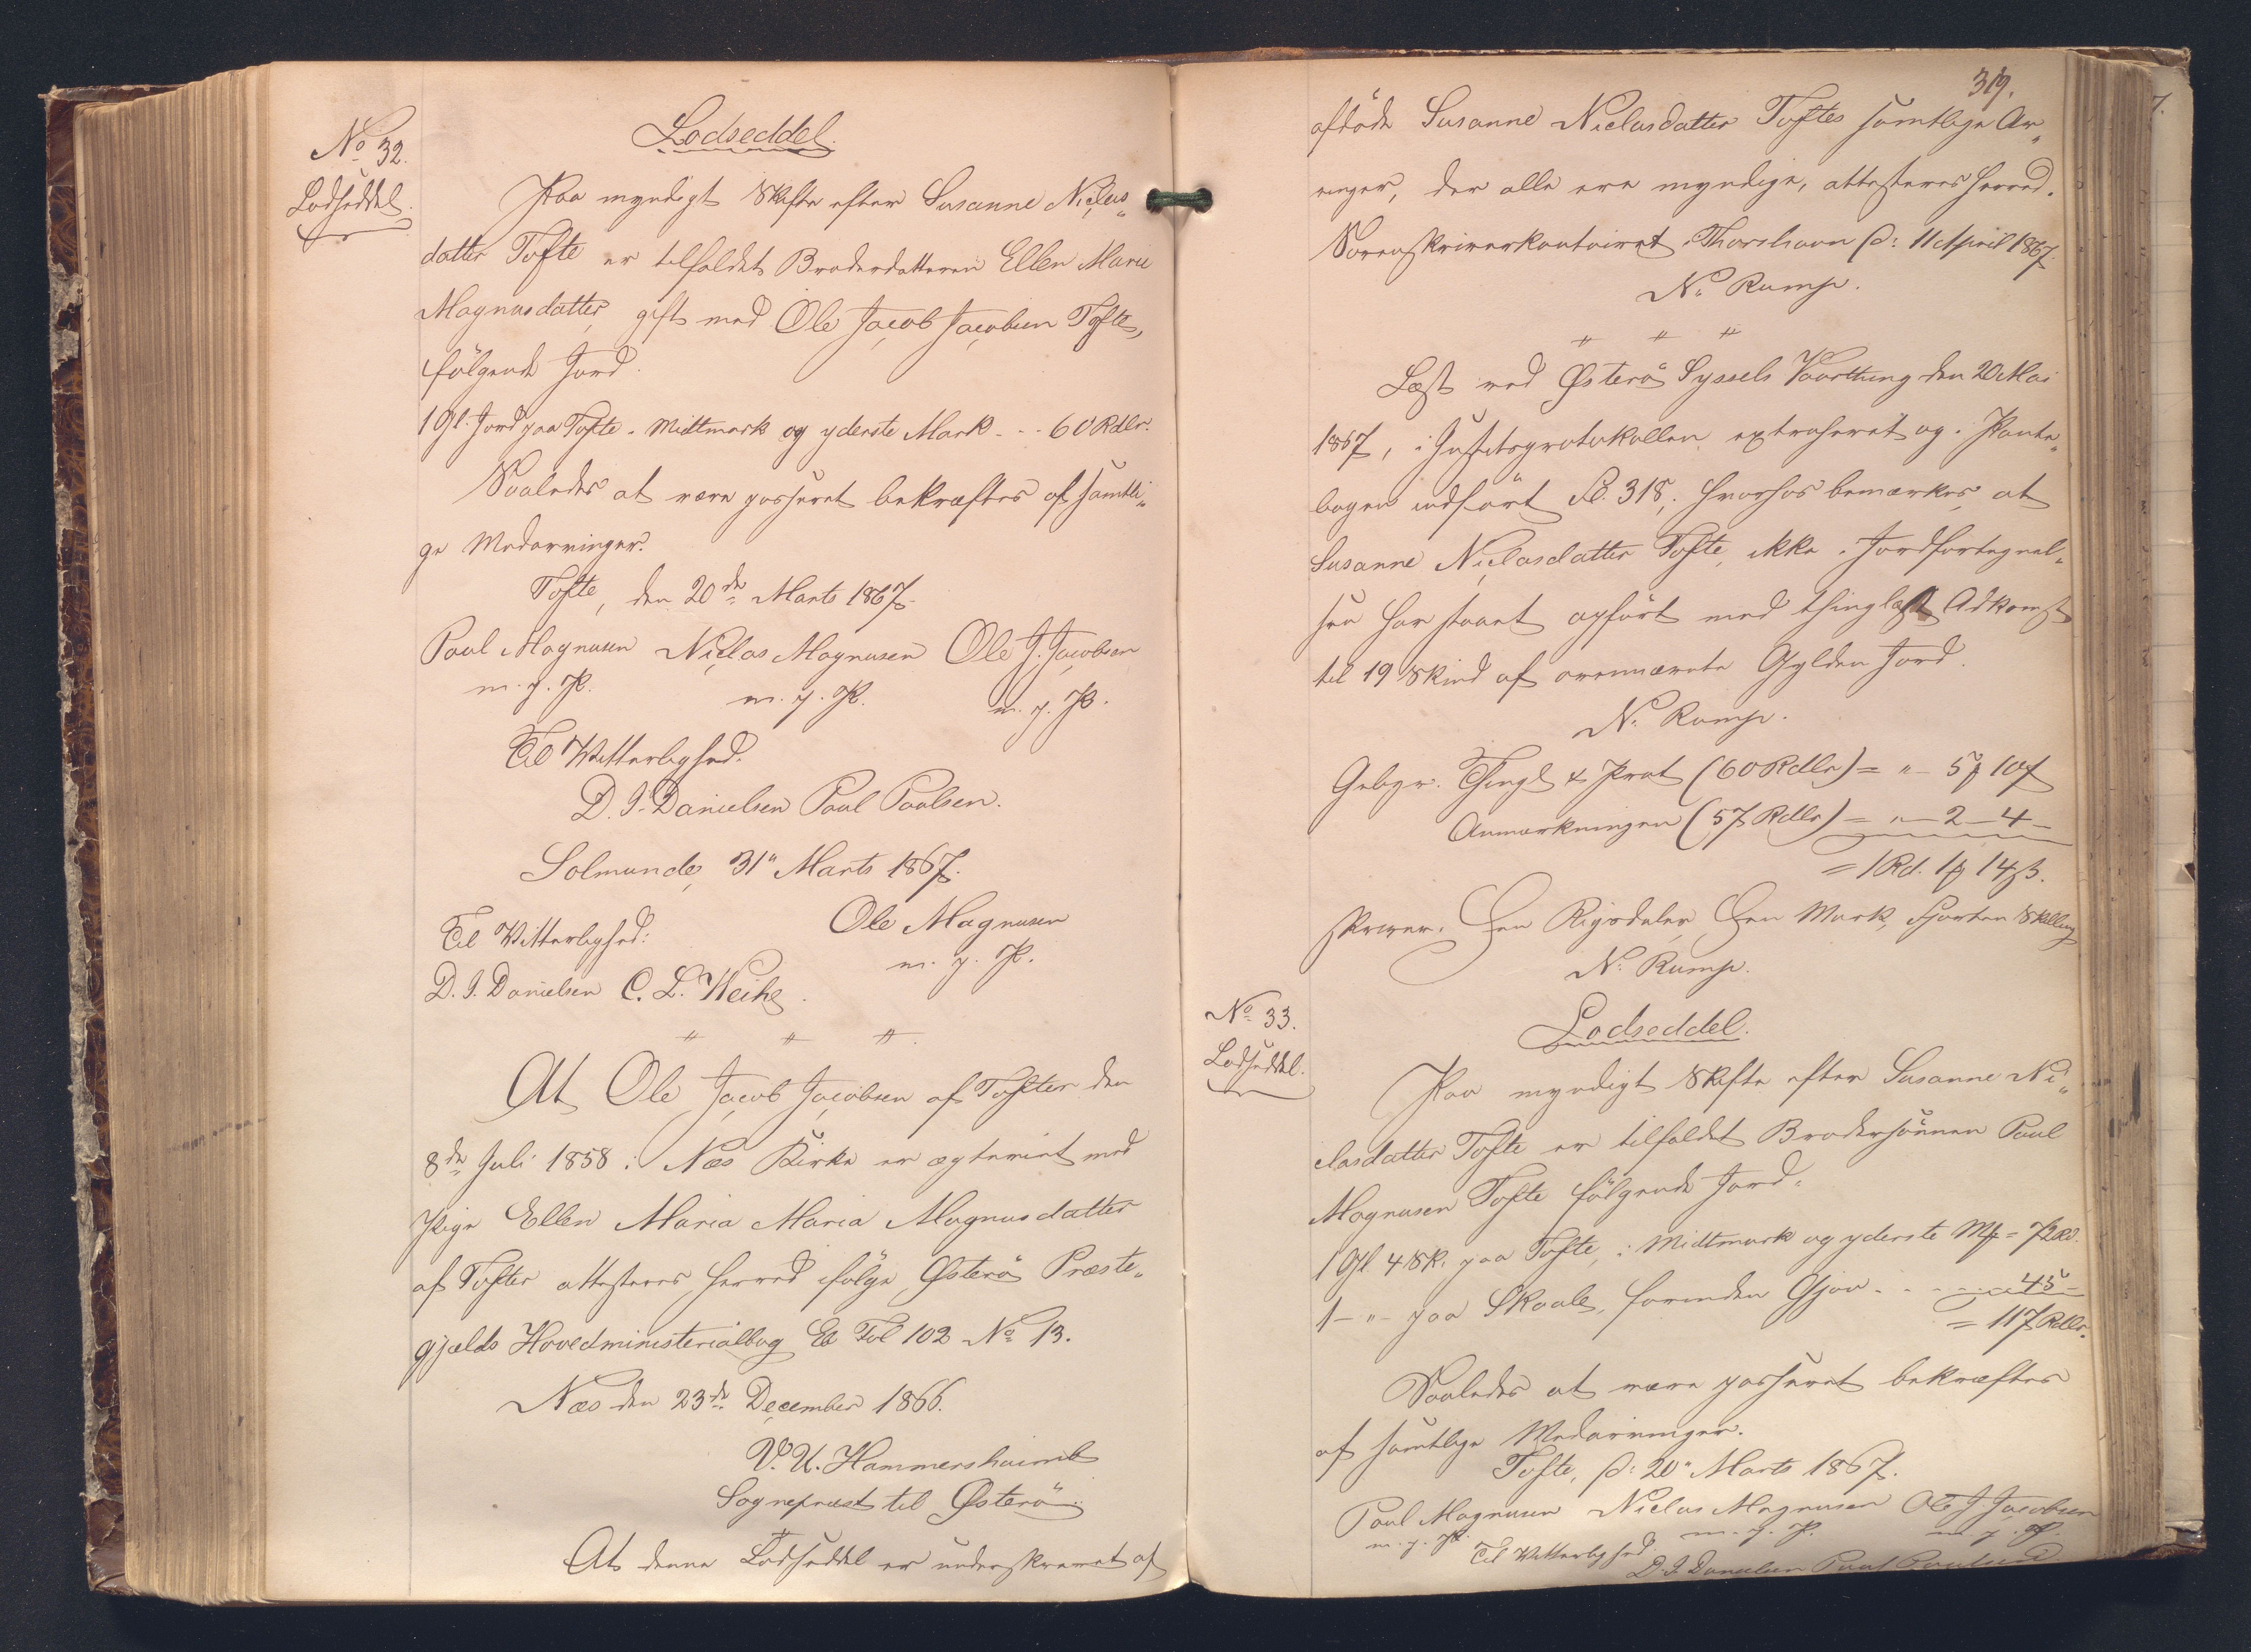 No 32.
Lodseddel.
Lodseddel.
Paa myndigt Skifte efter Susanne Niclas„
datter Tofte er tilfaldet Broderdatteren Ellen Marie
Magnusdatter, gift med Ole Jacob Jacobsen Tofte,
følgende Jord.
1 Gl. Jord paa Tofte. Midtmark og yderste Mark - - - 60 Rdlr.
Saaledes at være passeret bekræftes af samtli„
ge Medarvinger.
Tofte, den 20de Marts 1867.
Poul Magnusen Niclas Magnusen Ole J. Jacobsen
m. p. P. m. p. P. m. p. P.
Til Vitterlighed.
D. J. Danielsen Poul Poulsen.
Solmunde, 31" Marts 1867.
Ole Magnusen
Til Vitterlighed:
m. p. P.
D. J. Danielsen C. L. Weihe.
" " "
At Ole Jacob Jacobsen af Tofter den
8de Juli 1858 i Næs Kirke er ægteviet med
Pige Ellen Maria Maria Magnusdatter
af Tofter attesteres herved ifølge Østerø Præste„
gjælds Hovedministerialbog Fol 102 No 13.
Næs den 23de December 1866.
V. U. Hammershaimb
Sognepræst til Østerø
At denne Lodseddel er underskrevet af
319.
afdøde Susanne Niclasdatter Toftes samtlige Ar„
vinger, der alle ere myndige, attesteres herved.
Sorenskriverkontoiret i Thorshavn d: 11 April 1867.
N. Rump.
" " "
Læst ved Østerø Syssels Vaarthing den 20 Mai
1867, i Justitsprotokollen extraheret og i Pante„
bogen indført Fol. 318, hvorhos bemærkes, at
Susanne Niclasdatter Tofte, ikke i Jordfortegnel„
sen har staaet opført med thinglæst Adkomst
til 19 Skind af ovennævnte Gylden Jord.
N. Rump.
Gebyr. Thingl & Prot (60 Rdlr) = " - 5 ꝶ 10 ß
Anmærkningen (57 Rdlr) = " - 2 - 4 -
= 1 Rd. 1 ꝶ 14 ß.
skriver. Een Rigsdaler, Een Mark, fjorten Skilling
N. Rump.
No 33.
Lodseddel.
Lodseddel.
Paa myndigt Skifte efter Susanne Ni„
clasdatter Tofte er tilfaldet Brodersønnen Poul
Magnusen Tofte følgende Jord.
1 Gl. 4 Sk. paa Tofte, i Midtmark og yderste Mk = 72 Rd.
1 - " - paa Skaale, forinden Gjov - - - - - 45 -
= 117 Rdlr.
Saaledes at være passeret bekræftes
af samtlige Medarvinger.
Tofte, d: 20" Marts 1867.
Poul Magnusen Niclas Magnusen Ole J. Jacobsen
m. p. P. m. p. P. m. p. P.
Til Vitterlighed:
D. J. Danielsen Poul Poulsen